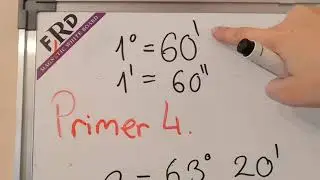 FRD
MAGNETIC WHITE BOARD
1° = 60'
1' = 60"
Primer 4.
= 63° 20'